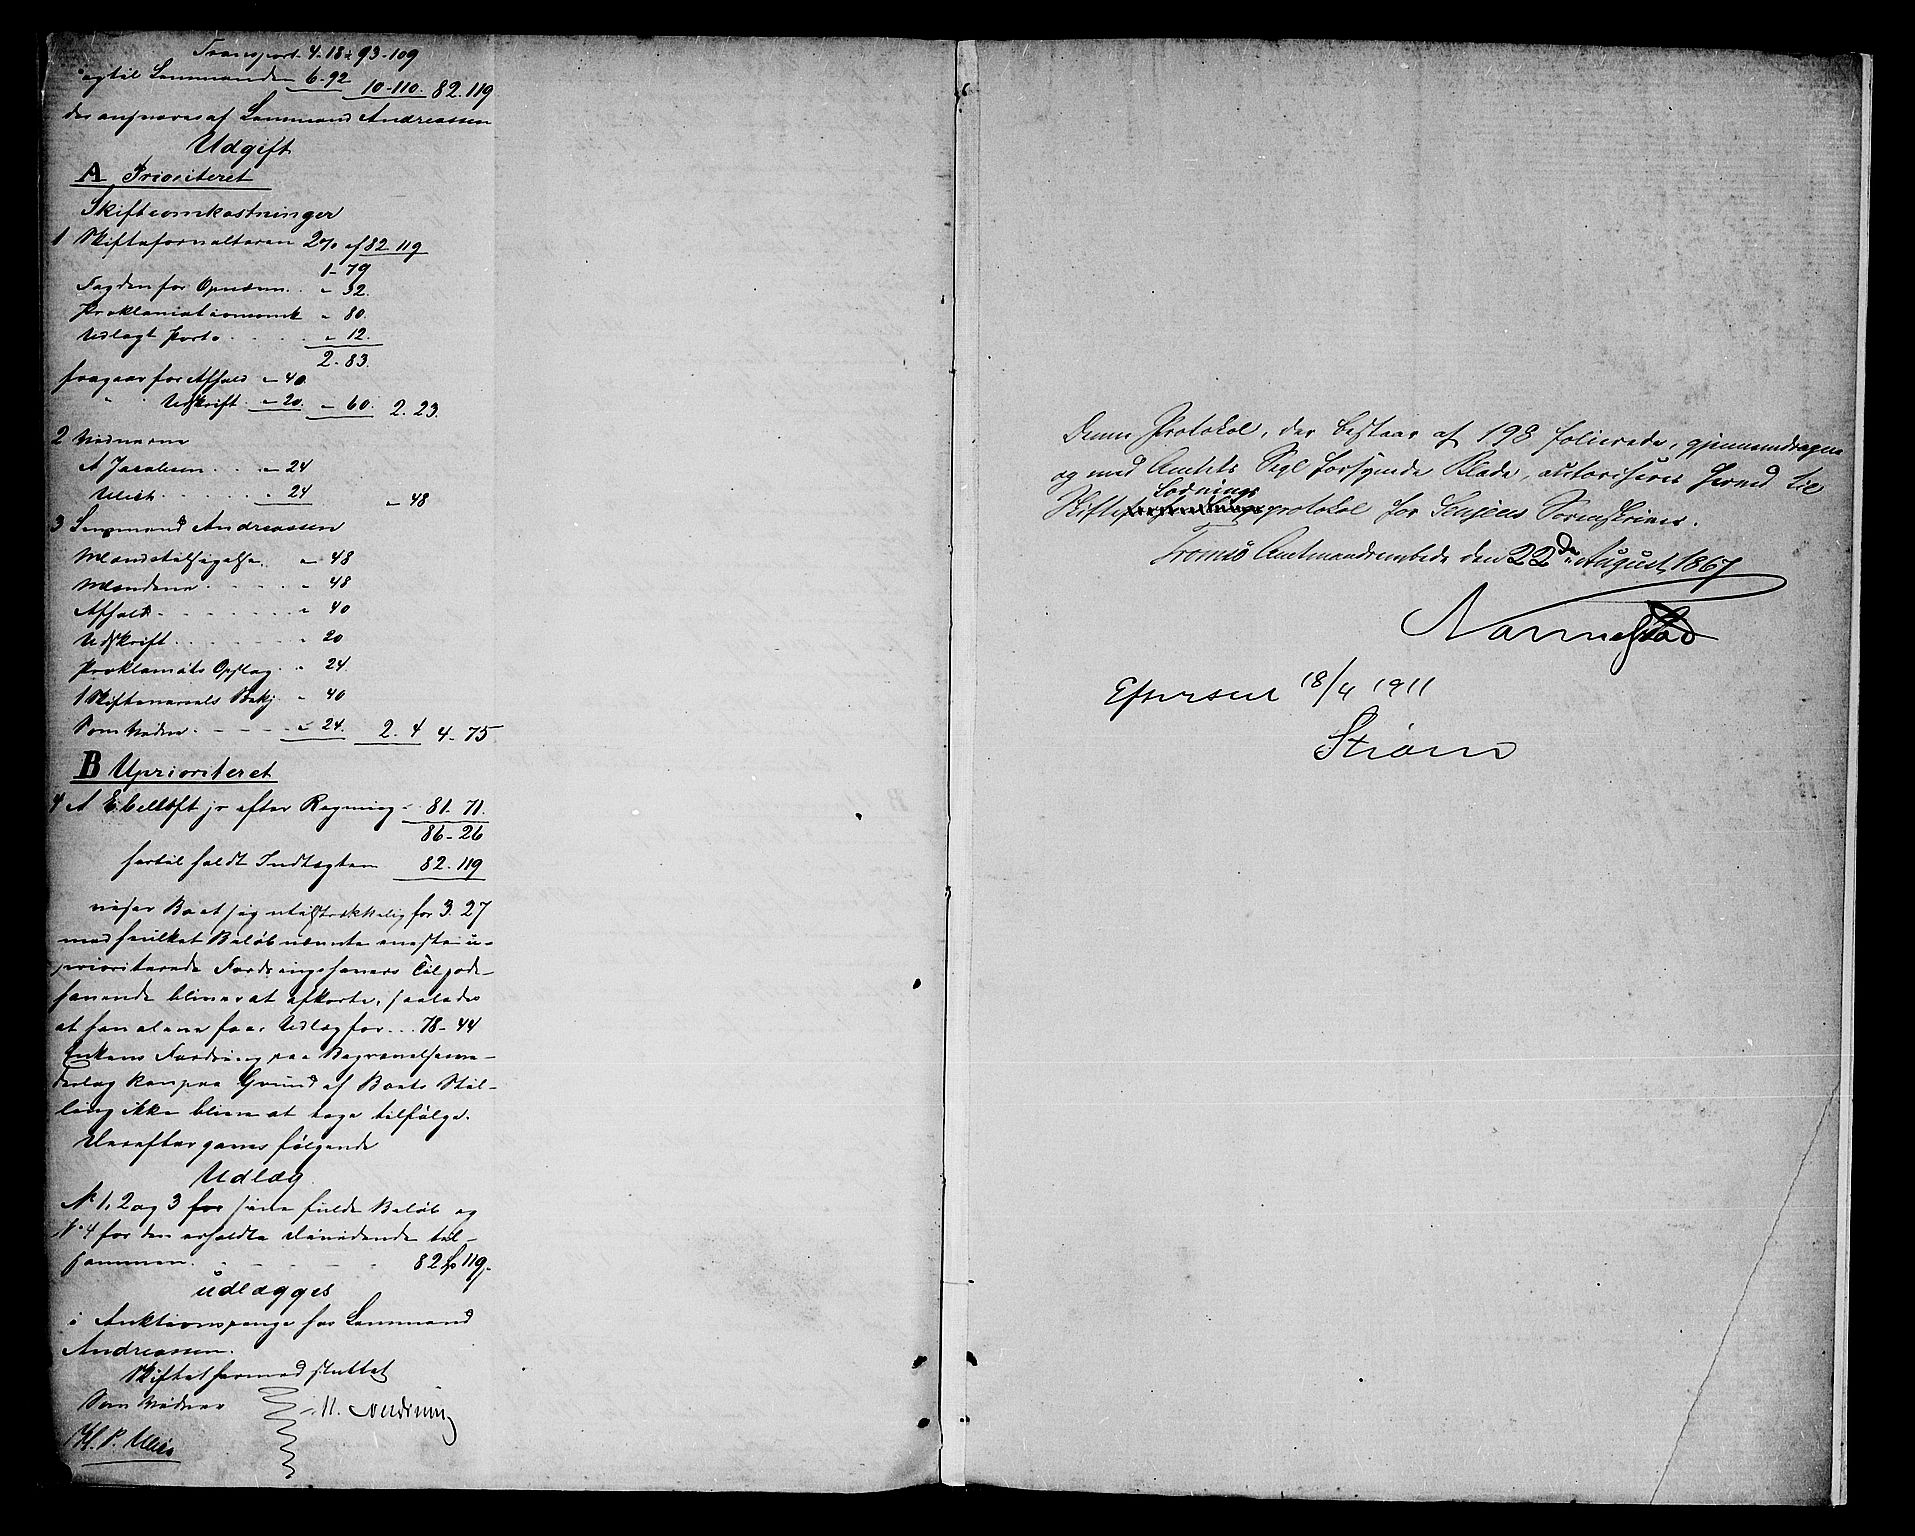 Transport 4-18 93-109
og til Lensmanden 6-92 10-110. 82.119
der ansvares af Lensmand Andreassen
Udgift
A Prioriteret
Skifteomkostninger
1 Skifteforvalteren 2% af 82 119
1-79
Fogden for Opnævn. . „ 32.
Proklamationsomk „ 80.
Udlagt Porto . . . . „ 12.
2-83.
fragaar for Afhold „ 40.
„ Udskrift „ 20. „ 60. 2.23.
2 Vidnerne
A Jacobsen . . . „ 24
Ulich . . . . . . „ 24 „ 48
3 Lensmand Andreassen
Mændstilsigelse. . „ 48
Mændene . . . . . „ 48
Afhold . . . . . . „ 40
Udskrift . . . . . „ 20
Proklamats Opslag . „ 24.
1 Skiftevarsels Bekj „ 40
Som Vidne . - - - - „ 24. 2. 4 4-75.
B Uprioriteret
4 A Ebeltoft jr efter Regning 81-71.
86-26
hertil holdt Indtægten 82.119
viser Boet sig utilstrækkelig for 3.27
med hvilket Beløb nævnte eneste u-
prioriterede Fordringshavers Tilgode-
havende bliver at afkorte, saaledes
at han alene faar Udlæg for . . . 78-44
Enkens Fordring paa Begravelsesud-
delag kan paa Grund af Boets Stil-
ling ikke blive at tage tilfølge.
Derefter gjøres følgende
Udlæg
N 1, 2 og 3 for sine fulde Beløb og
N 4 for den erholdte Dividende til-
sammen. - - - - - 82 119.
udlægges
i Auktionspenge hos Lensmand
Andreassen.
Skiftet hermed sluttet
Som Vidner
H. P. Ulich
Denne Protokol, der bestaar af 198 folierede, gjennemdragne
og med Amtets Segl forsynede Blade, autoriseres herved til
Skifteprotokol for Senjens Sorenskriver.
Tromsö Amtmandsembede den 22de August 1867
Nannestad
Efterseet 18/4 1911
Strøm